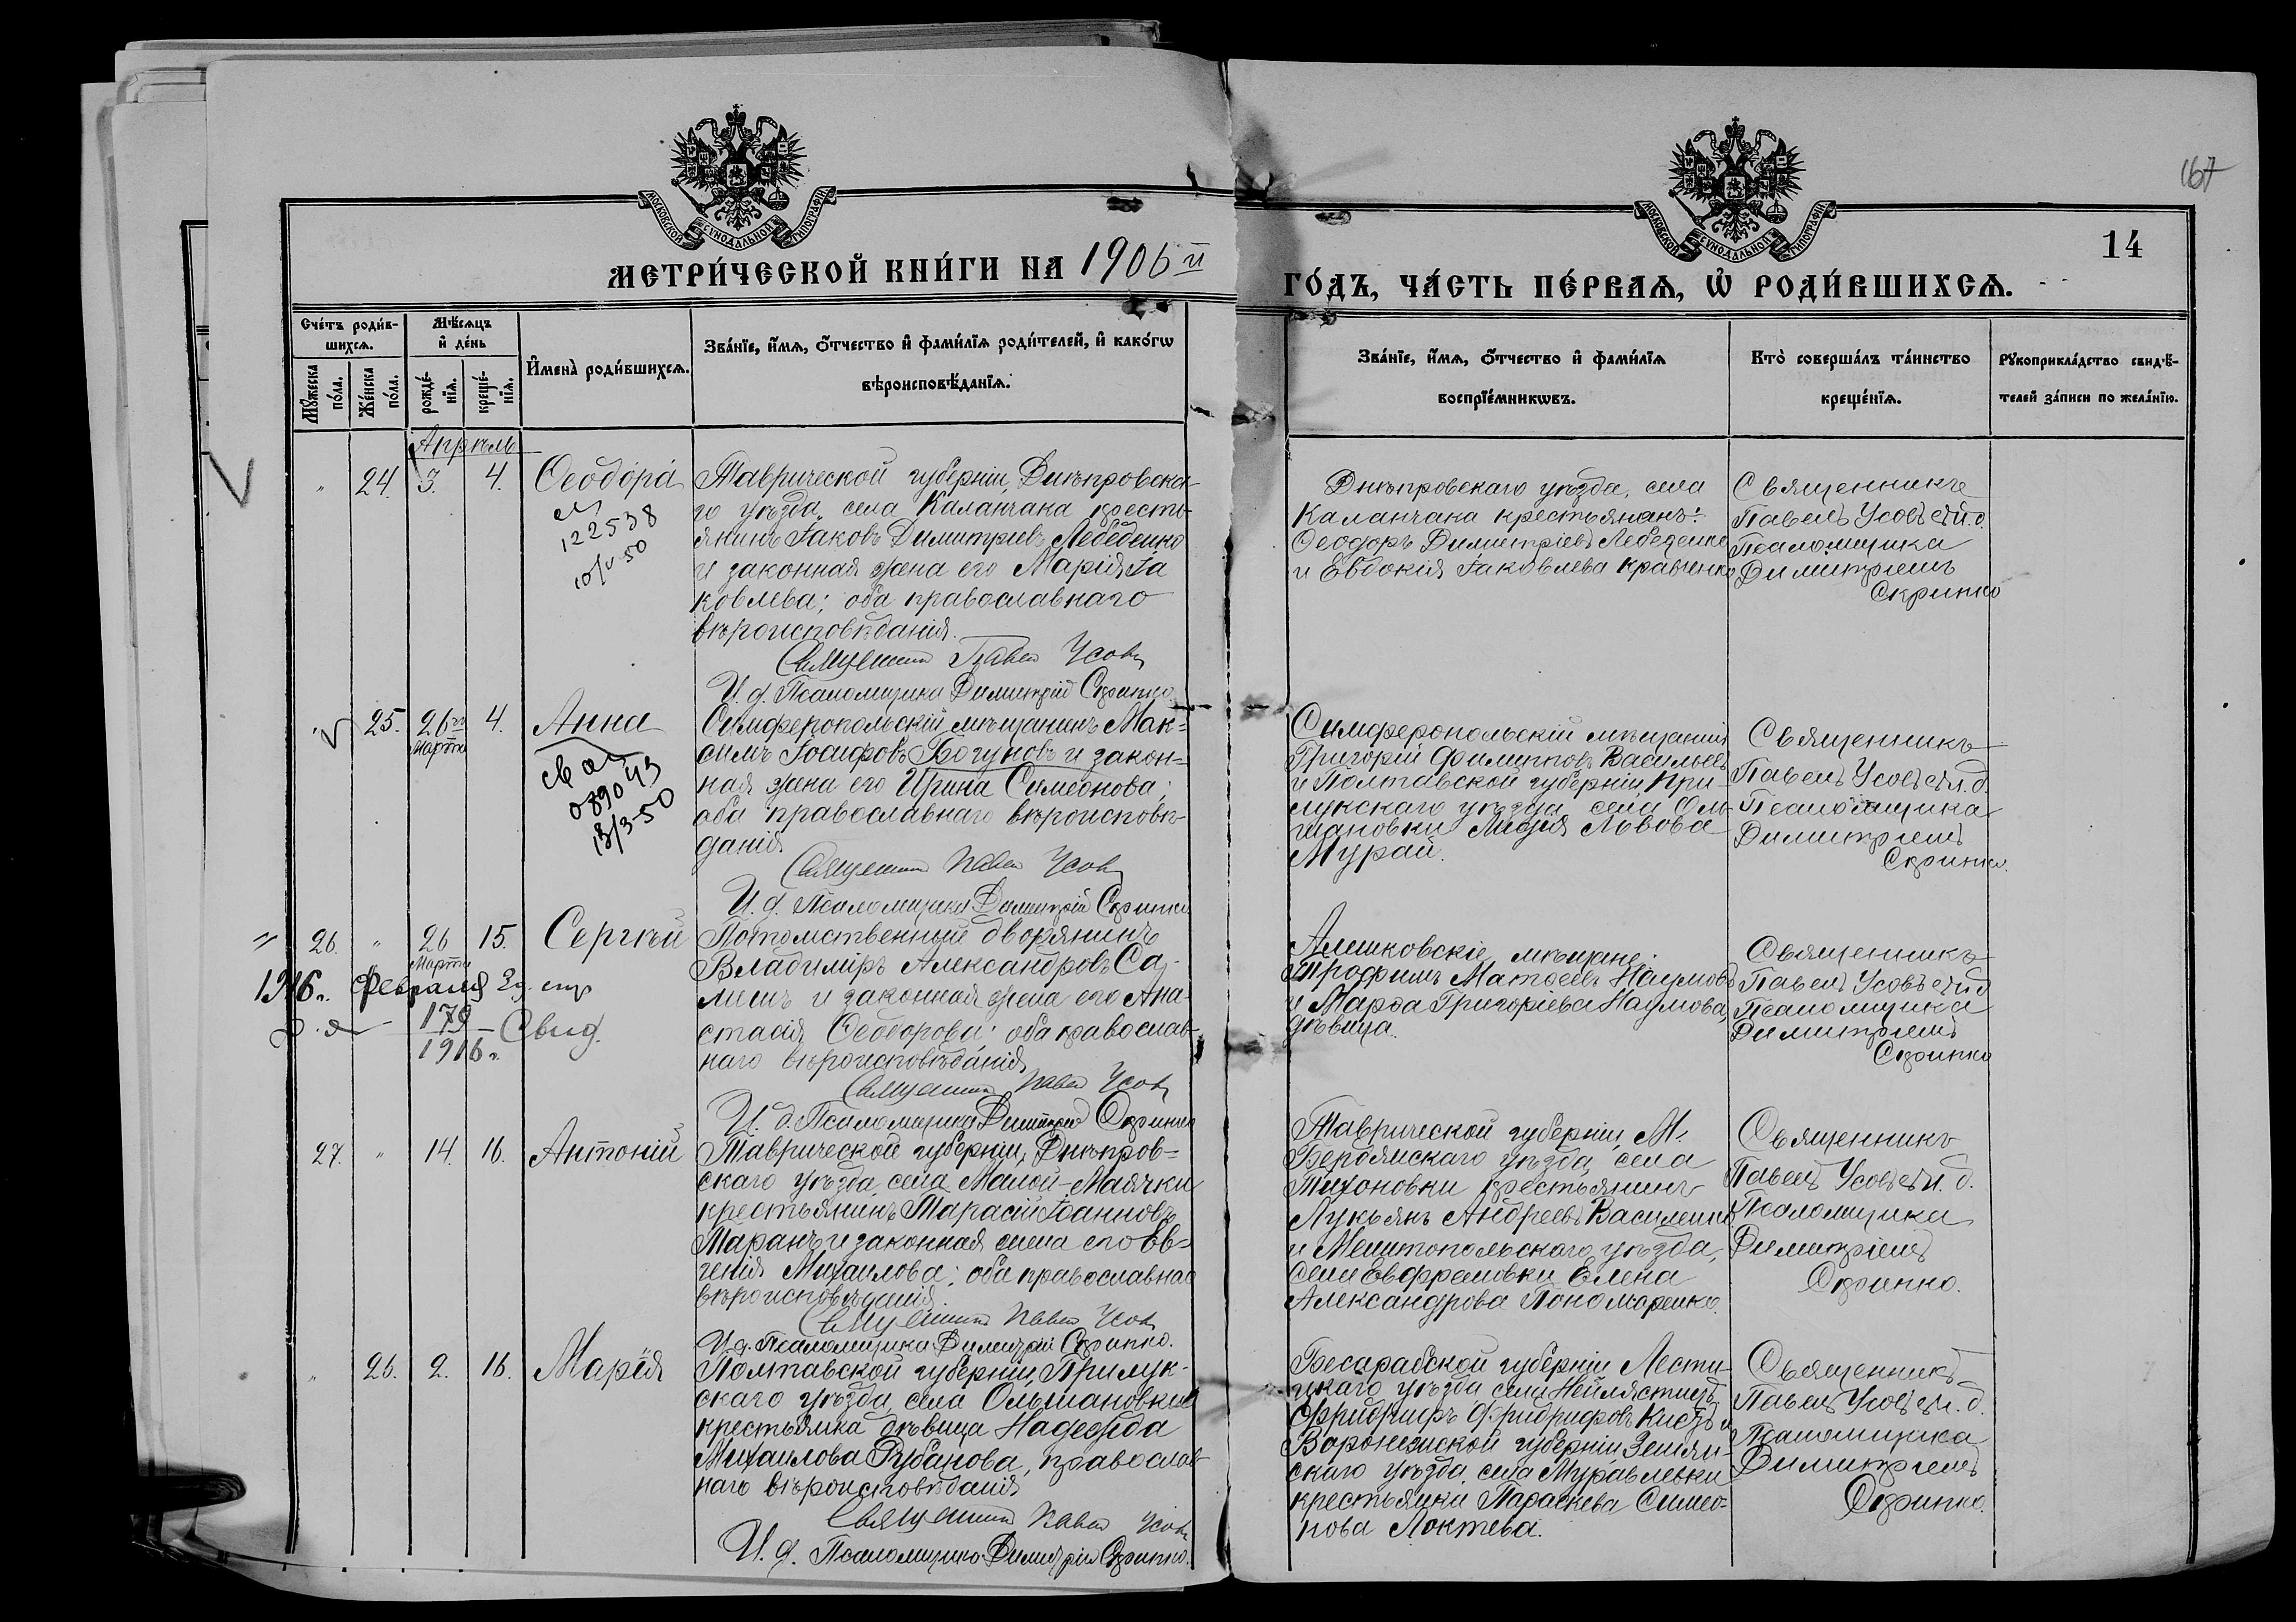 167
МОСКОВСКОЙ СѴНОДАЛЬНОЙ ТИПОГРАФІИ
МОСКОВСКОЙ СѴНОДАЛЬНОЙ ТИПОГРАФІИ
14
МЕТРИ́ЧЕСКОЙ КНИ́ГИ НА 1906 й
ГО́ДЪ, ЧА́СТЬ ПЕ́РВАѦ, Ѡ҆ РОДИ́ВШИХСѦ.
Сче́тъ роди́в-
шихсѧ.
Мѣ́сѧцъ
и҆ де́нь
Мꙋ́жеска
по́ла.
Же́нска
по́ла.
рожде́-
нїѧ.
креще́-
нїѧ.
И҆мена̀ роди́вшихсѧ.
Зва́нїе, и҆́мѧ, ѻ҆́тчество и҆ фами́лїѧ роди́телей, и҆ како́гѡ
вѣроисповѣ́данїѧ.
Зва́нїе, и҆́мѧ, ѻ҆́тчество и҆ фами́лїѧ
воспрїе́мникѡвъ.
Кто̀ соверша́лъ та́инство
креще́нїѧ.
Рꙋкоприкла́дство свидѣ́-
телей за́писи по жела́нїю.
Апрѣль
" 24. 3. 4. Ѳеодора
122538
10/V-50
Таврической губерніи, Днѣпровска-
го уѣзда, села Каланчака кресть-
янинъ Іаковъ Димитріевъ Лебеденко
и законная жена его Марія Іа
ковлева; оба православнаго
вѣроисповѣданія.
Священникъ Павелъ Усовъ
И. д. Псаломщика Димитрій Скрипко
Днѣпровскаго уѣзда, села
Каланчака крестьянанъ:
Ѳеодоръ Димитріевъ Лебеденко
и Евдокія Іаковлева Кравченко
Священникъ
Павелъ Усовъ съ и. д.
Псаломщика
Димитріемъ
Скрипко
25. 26го 4. Анна
Марта
св а
089043
13/3-50
Симферопольскій мѣщанинъ Мак-
симъ Іосифовъ Богуновъ и закон-
ная жена его Ирина Симеонова;
оба православнаго вѣроисповѣ-
данія
Священникъ Павелъ Усовъ
И. д. Псаломщика Димитрій Скрипко
Симферопольскій мѣщанинъ
Григорій Филипповъ Васильевъ
и Полтавской губерніи, При-
лукскаго уѣзда, села Оль-
шановки Лидія Львова
Мурай.
Священникъ
Павелъ Усовъ съ и. д.
Псаломщика
Димитріемъ
Скрипко.
26. " 26 15. Сергѣй
Марта
1916 г. Февраля
179 — Свид.
1916 г.
Потомственный дворянинъ
Владиміръ Александровъ Са-
и законная жена его Ана-
стасія Ѳеодорова; оба православ-
наго вѣроисповѣданія
Священникъ Павелъ Усовъ
И. д. Псаломщика Димитрій Скрипко
Алешковскіе мѣщане:
Трофимъ Матѳеевъ Наумовъ
и Марѳа Григоріева Наумова,
дѣвица.
Священникъ
Павелъ Усовъ съ и. д.
Псаломщика
Димитріемъ
Скрипко
27. " 14. 16. Антоній
Таврической губерніи, Днѣпров-
скаго уѣзда, села Малой-Маячки
крестьянинъ Тарасій Іоанновъ
Таранъ и законная жена его Ев-
генія Михаилова; оба православнаго
вѣроисповѣданія.
Священникъ Павелъ Усовъ
И. д. Псаломщика Димитрій Скрипко.
Таврической губерніи,
Бердянскаго уѣзда, села
Тихоновки крестьянинъ
Лукьянъ Андреевъ Василенко
и Мелитопольскаго уѣзда,
села Евфремовки Елена
Александрова Пономаренко.
Священникъ
Павелъ Усовъ съ и. д.
Псаломщика
Димитріемъ
Скрипко.
" 26. 2. 16. Марія
Полтавской губерніи, Прилук-
скаго уѣзда, села Ольшановки
крестьянка дѣвица Надежда
Михаилова Рубанова, православ-
наго вѣроисповѣданія
Священникъ Павелъ Усовъ
И. д. Псаломщика Димитрій Скрипко.
Бесарабской губерніи
уѣзда села
Фридрихъ Фридриховъ
Воронежской губерніи, Землян-
скаго уѣзда, села Муравлевки
крестьянка Параскева Симео-
нова Локтева.
Священникъ
Павелъ Усовъ съ и. д.
Псаломщика
Димитріемъ
Скрипко.